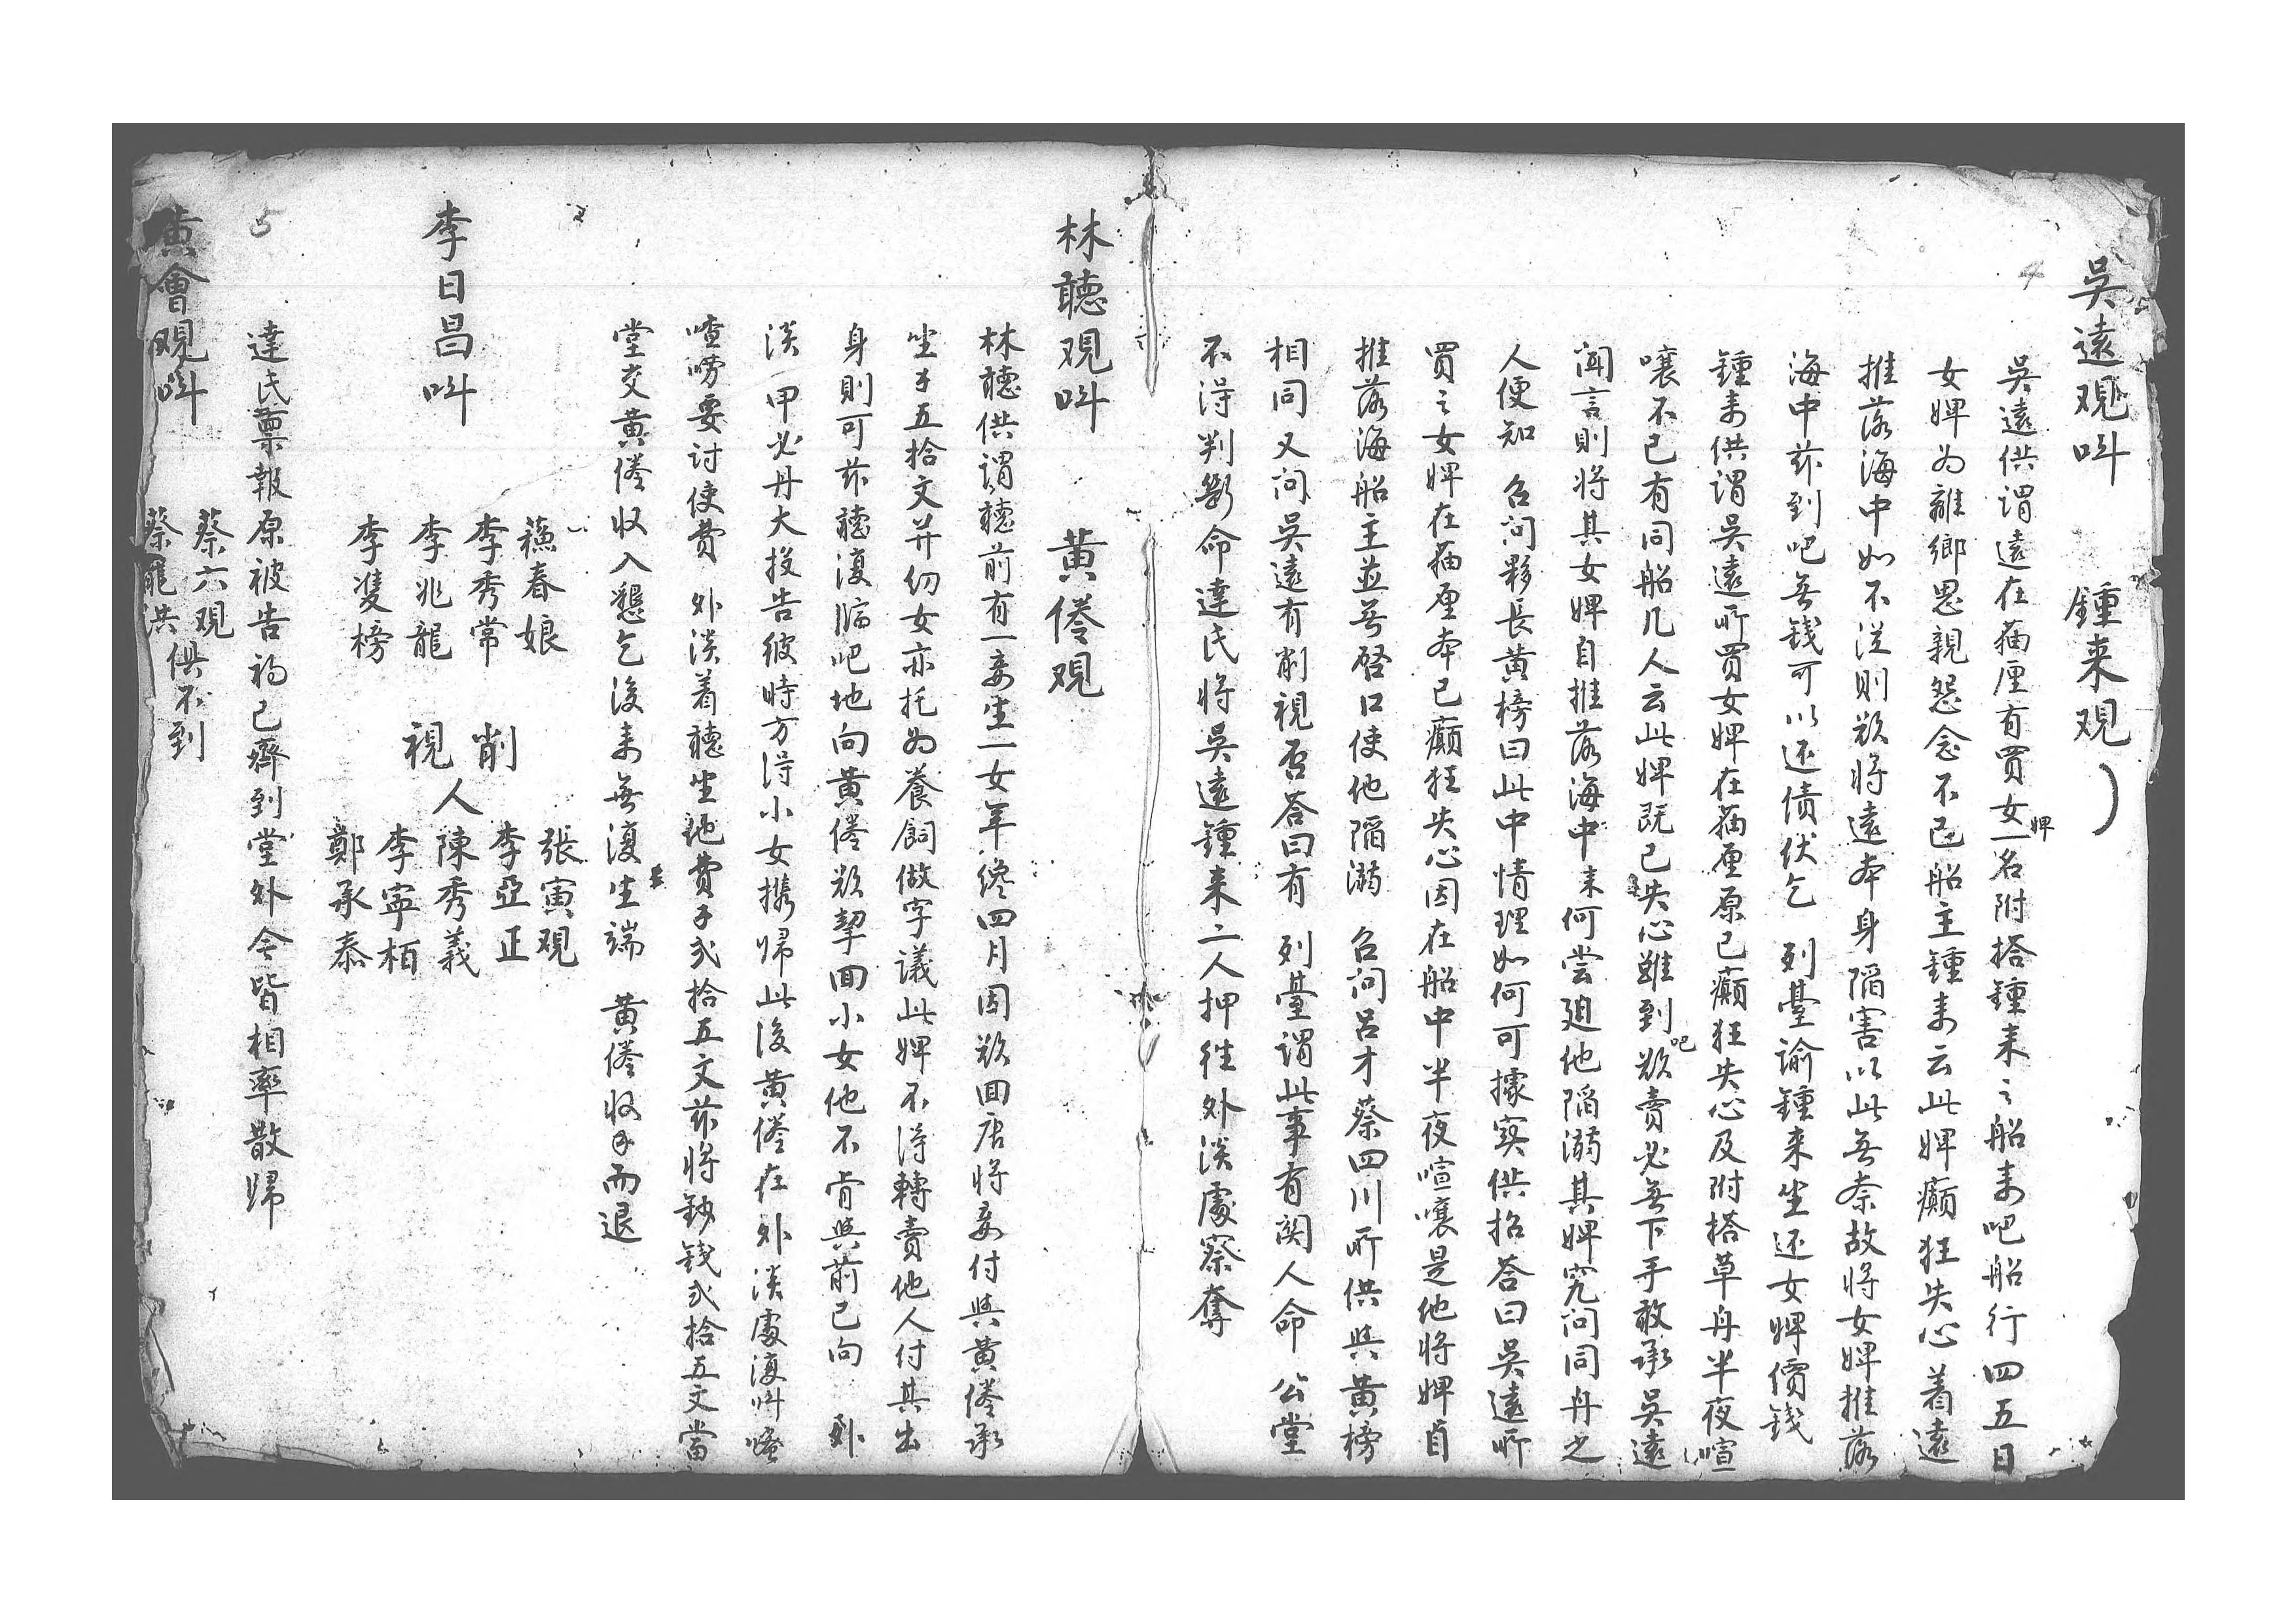 吳遠观呌　鍾来观
4
吳遠供謂遠在猫厘有買女婢一名附搭鍾来之船来吧船行四五日
女婢为離鄉思親怨念不已船主鍾来云此婢癲狂失心着遠
推落海中如不从則欲将遠本身陷害以此無奈故将女婢推落
海中茲到吧無錢可以还債伏乞　列臺諭鍾来坐还女婢價錢
鍾来供謂吳遠所買女婢在猫厘原已癲狂失心及附搭草舟半夜喧
嚷不已有同船几人云此婢既已失心雖到吧欲賣必無下手敢承吳遠
闻言則将其女婢自推落海中来何尝廹他陷溺其婢究问同舟之
人便知　台问夥長黄榜曰此中情理如何可據寔供招荅曰吳遠所
買之女婢在猫厘本已癲狂失心因在船中半夜喧嚷是他将婢自
推落海船主並無啓口使他陷溺　台问吕才蔡四川所供與黄榜
相同又问吳遠有削視否荅曰有　列臺謂此事有関人命　公堂
不淂判断命達氏将吳遠鍾来二人押徃外淡處察奪
林聽观呌　黄倦观
林聽供謂聽前有一妾生一女年纔四月因欲回唐将妾付與黄倦承
坐钅五拾文并幼女亦托为養飼做字議此婢不淂轉賣他人付其出
身則可茲聽復临吧地向黄倦欲挈回小女他不肯與前已向　外
淡　甲必丹大投告彼時方淂小女携归此後黄倦在外淡處復呌
喳嘮要讨使費　外淡着聽坐他費钅弍拾五文茲将鈔錢弍拾五文當
堂交黄倦收入懇乞後来無復生端　黄倦收钅而退
李日昌呌
蘓春娘
李秀常
李兆龍
李隻榜
削視人
張寅观
李亞正
陳秀義
李寧栢
鄭承泰
5
達氏禀報原被告祸已齊到堂外今皆相率散歸
黄會观呌
蔡六观
蔡龍洪
俱不到